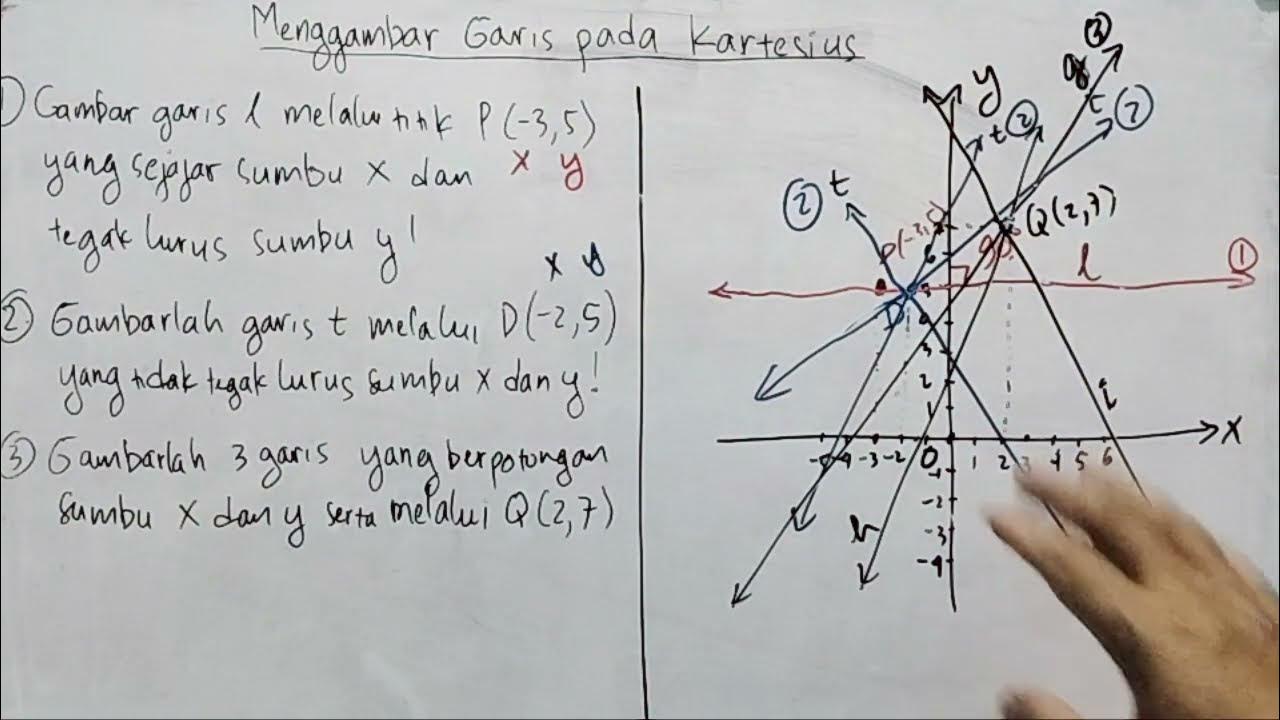 Menggambar Garis pada Kartesius
① Gambar garis l melalui titik P(-3,5)
yang sejajar sumbu x dan x y
tegak lurus sumbu y!
x y
② Gambarlah garis t melalui D(-2,5)
yang tidak tegak lurus sumbu x dan y!
③ Gambarlah 3 garis yang berpotongan
sumbu x dan y serta melalui Q(2,7)
③
g
y
t ②
t ②
② t
Q(2,7)
P(-3,5)
l ①
6
5
4
3
2
1
D
i
x
-5 -4 -3 -2 0 1 2 3 4 5 6
-1
-2
-3
-4
h